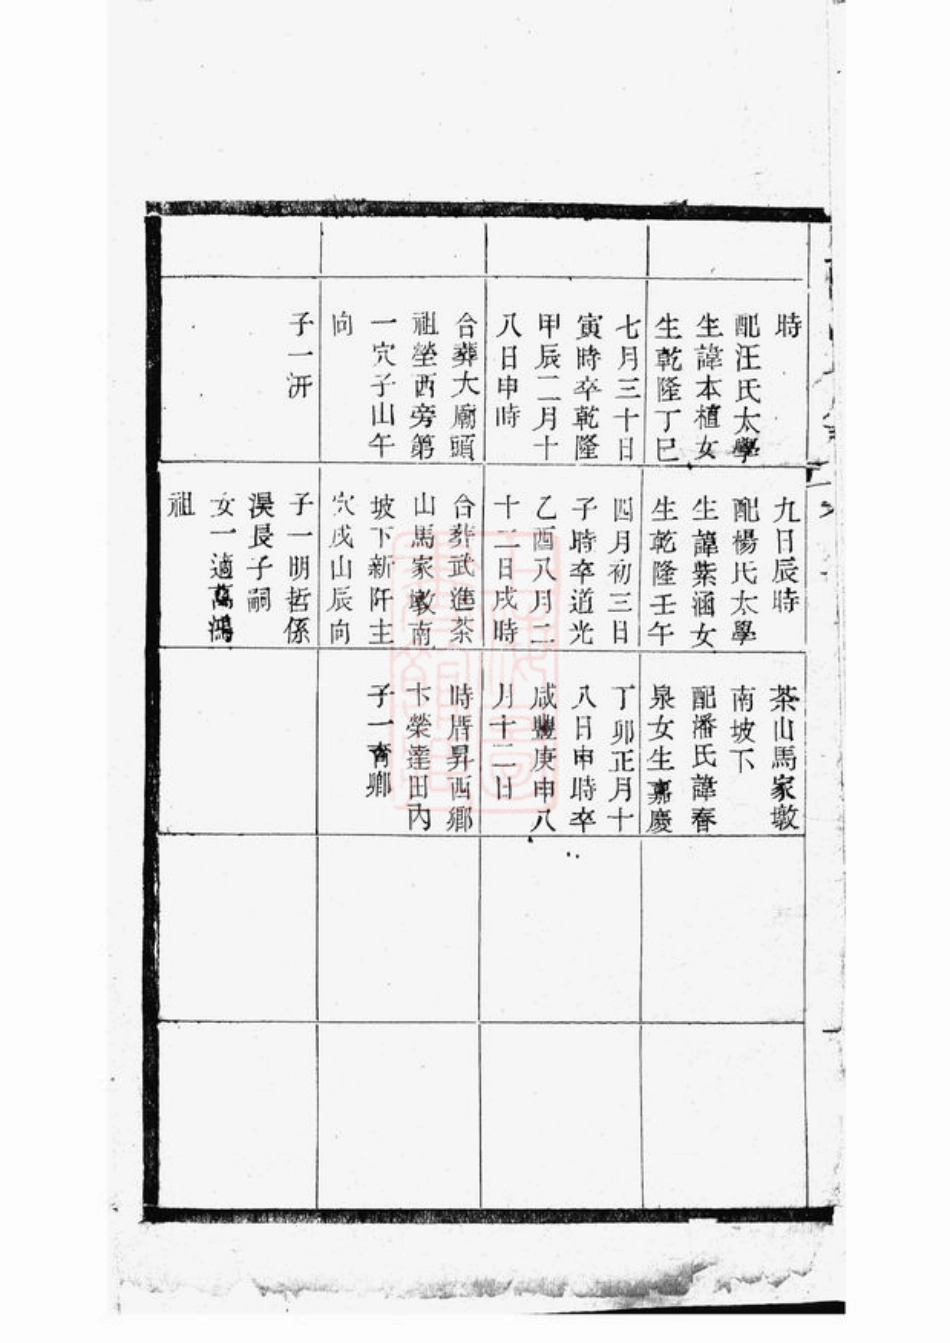 時
配汪氏太學
生諱本植女
生乾隆丁巳
七月三十日
寅時卒乾隆
甲辰二月十
八日申時
合葬大廟頭
祖塋西旁第
一穴子山午
向
子一汧
九日辰時
配楊氏太學
生諱紫涵女
生乾隆壬午
四月初三日
子時卒道光
乙酉八月二
十二日戌時
合葬武進茶
山馬家墩南
坡下新阡主
穴戌山辰向
子一明哲係
淏長子嗣
女一適萬鴻
祖
茶山馬家墩
南坡下
配潘氏諱春
泉女生嘉慶
丁卯正月十
八日申時卒
咸豐庚申八
月十二日
時厝昇西鄉
卞榮達田內
子一鄉